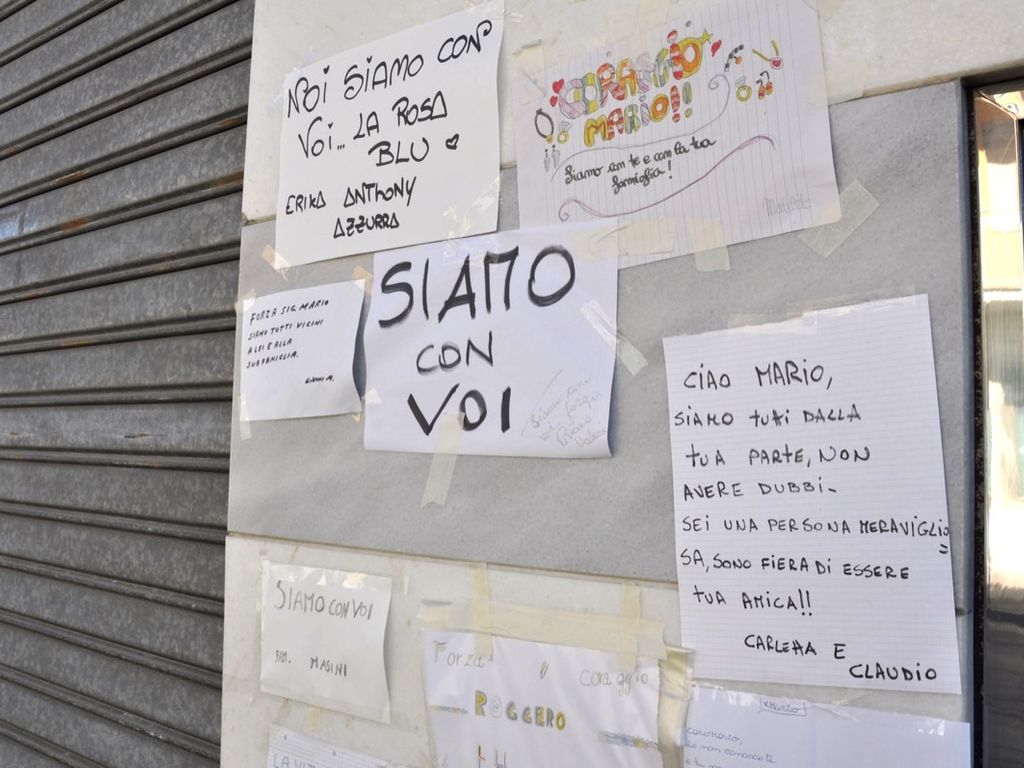 NOI SIAMO CON
VOI... LA ROSA
BLU
ERIKA ANTHONY
AZZURRA
CORAGGIO
MARIO!!
Siamo con te e con la tua
famiglia!
FORZA SIG. MARIO
SIAMO TUTTI VICINI
A LEI E ALLA
SUA FAMIGLIA.
GIANNI M.
SIAMO
CON
VOI
Siamo con
voi
CIAO MARIO,
SIAMO TUTTI DALLA
TUA PARTE, NON
AVERE DUBBI.
SEI UNA PERSONA MERAVIGLIO=
SA, SONO FIERA DI ESSERE
TUA AMICA!!
CARLENA E
CLAUDIO
SIAMO CON VOI
FAM. MASINI
Forza e coraggio
ROGGERO
LA VITA
x Mario
Caro Mario,
non conoscete